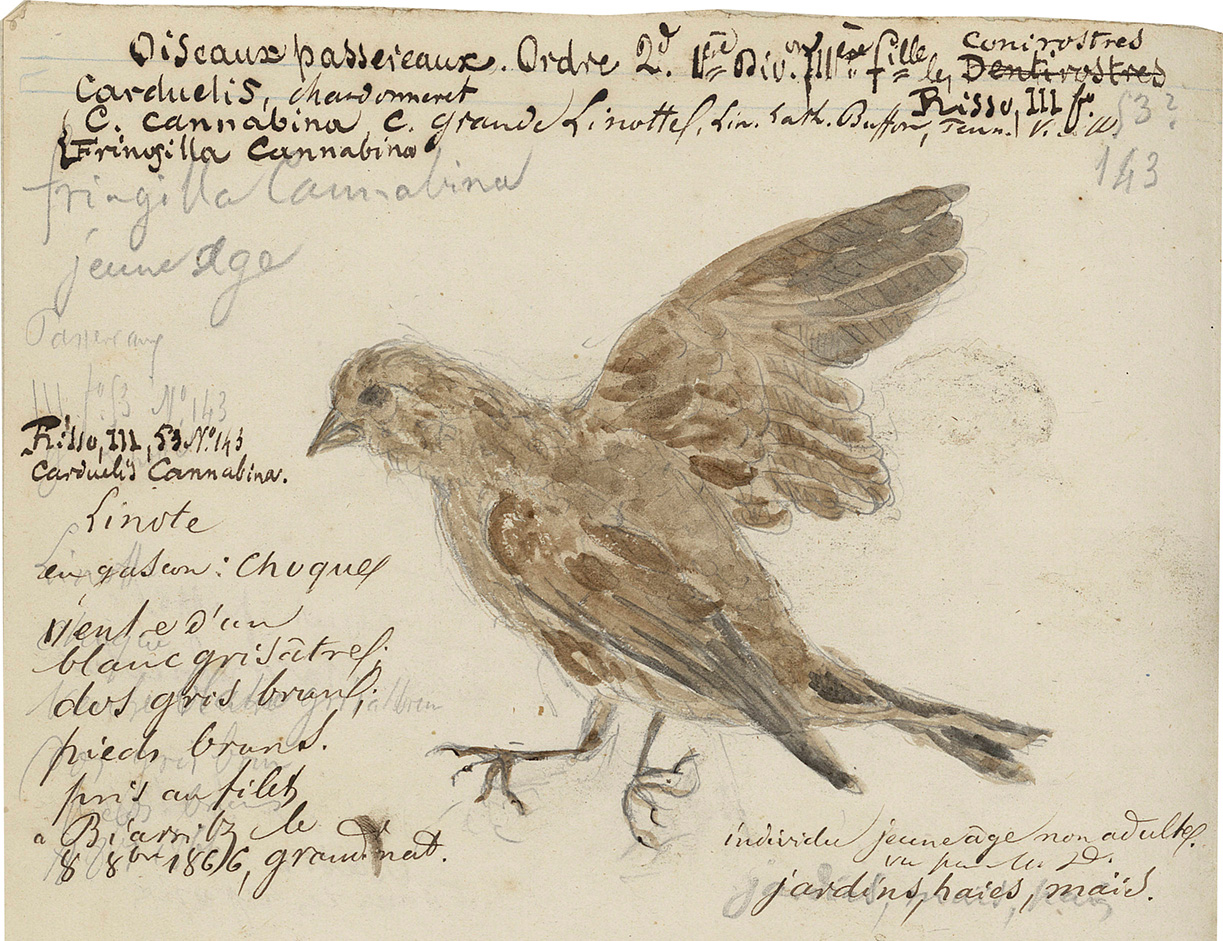 Oiseaux passereaux. Ordre 2d. 1ère Div.on IIIème fille les Dentirostres
Conirostres
Carduelis, chardonneret
Risso, III f.o 53?
C. Cannabina, C. grande Linotte, Lin. Lath. Buffon, Temm. V.
Fringilla Cannabina
143
fringilla Cannabina
jeune age
Passereaux
III fo 53 No 143
Risso, III, 53 No 143
Carduelis Cannabina.
Linote
en gascon: Choque
ventre d'un
blanc grisâtre;
dos gris brun;
pieds bruns.
pris au filet
a Biarritz le
8 8bre 1866, grand. nat.
individu jeune âge non adulte.
vu par M. D.
jardins, haies, maïs.